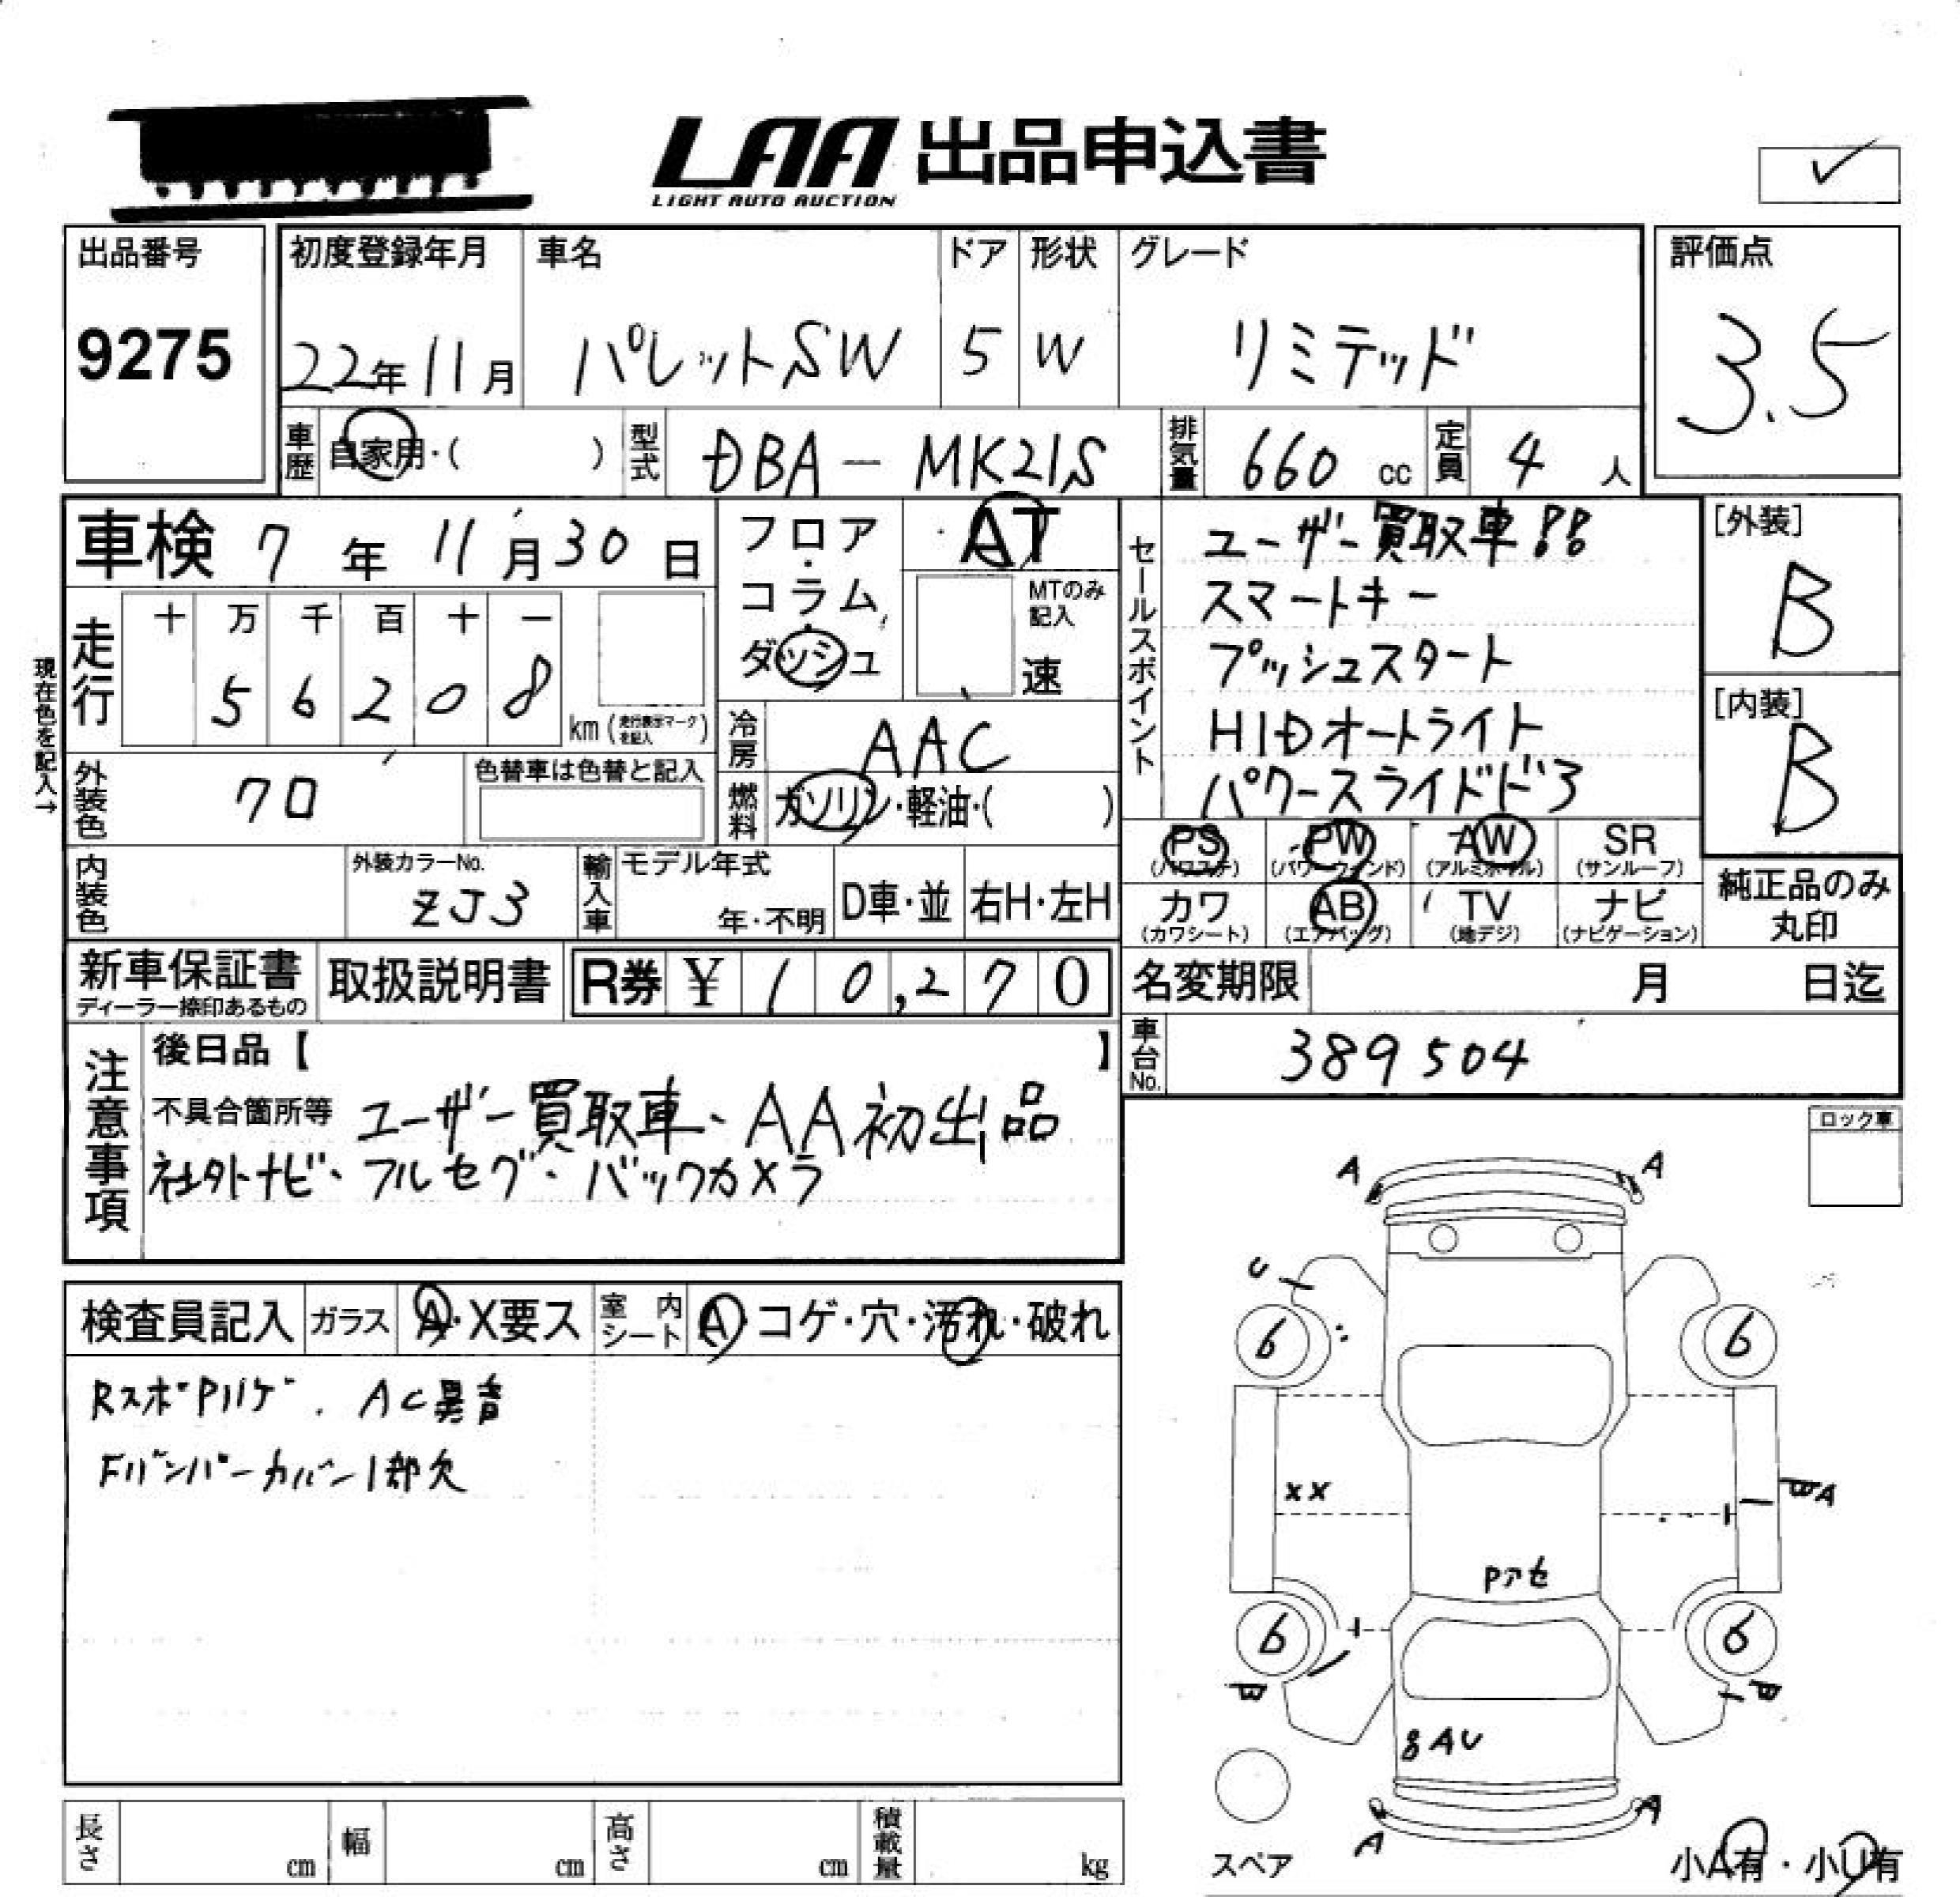 LAA 出品申込書
LIGHT AUTO AUCTION
出品番号
9275
初度登録年月
22年11月
車名
パレットSW
ドア
5
形状
W
グレード
リミテッド
評価点
3.5
車歴
自家用・( )
型式
DBA-MK21S
排気量
660 cc
定員
4 人
車検 7年 11月30日
走行
十 万 千 百 十 一
5 6 2 0 8
km (走行表示マークを記入)
現在色を記入→
外装色
クロ
色替車は色替と記入
内装色
外装カラーNo.
ZJ3
フロア・
コラム・
ダッシュ
AT
MTのみ記入
速
冷房
AAC
燃料
ガソリン・軽油・( )
輸入車
モデル年式
年・不明
D車・並
右H・左H
セールスポイント
ユーザー買取車!!
スマートキー
プッシュスタート
HIDオートライト
パワースライドドア
[外装]
B
[内装]
B
PS
(パワステ)
PW
(パワーウィンド)
AW
(アルミホイル)
SR
(サンルーフ)
カワ
(カワシート)
AB
(エアバッグ)
TV
(地デジ)
ナビ
(ナビゲーション)
純正品のみ
丸印
新車保証書
ディーラー捺印あるもの
取扱説明書
R券 ¥ 10,270
名変期限 月 日迄
車台No.
389504
注意事項
後日品【 】
不具合箇所等 ユーザー買取車、AA初出品
社外ナビ、フルセグ、バックカメラ
ロック車
検査員記入
ガラス
A・X要ス
室内シート
A・コゲ・穴・汚れ・破れ
RスポPハゲ、AC異音
Fバンパーカバー1部欠
A
A
U
6
6
XX
BA
Pアセ
6
6
B
B
8AU
A
A
スペア
小A有・小U有
長さ cm
幅 cm
高さ cm
積載量 kg